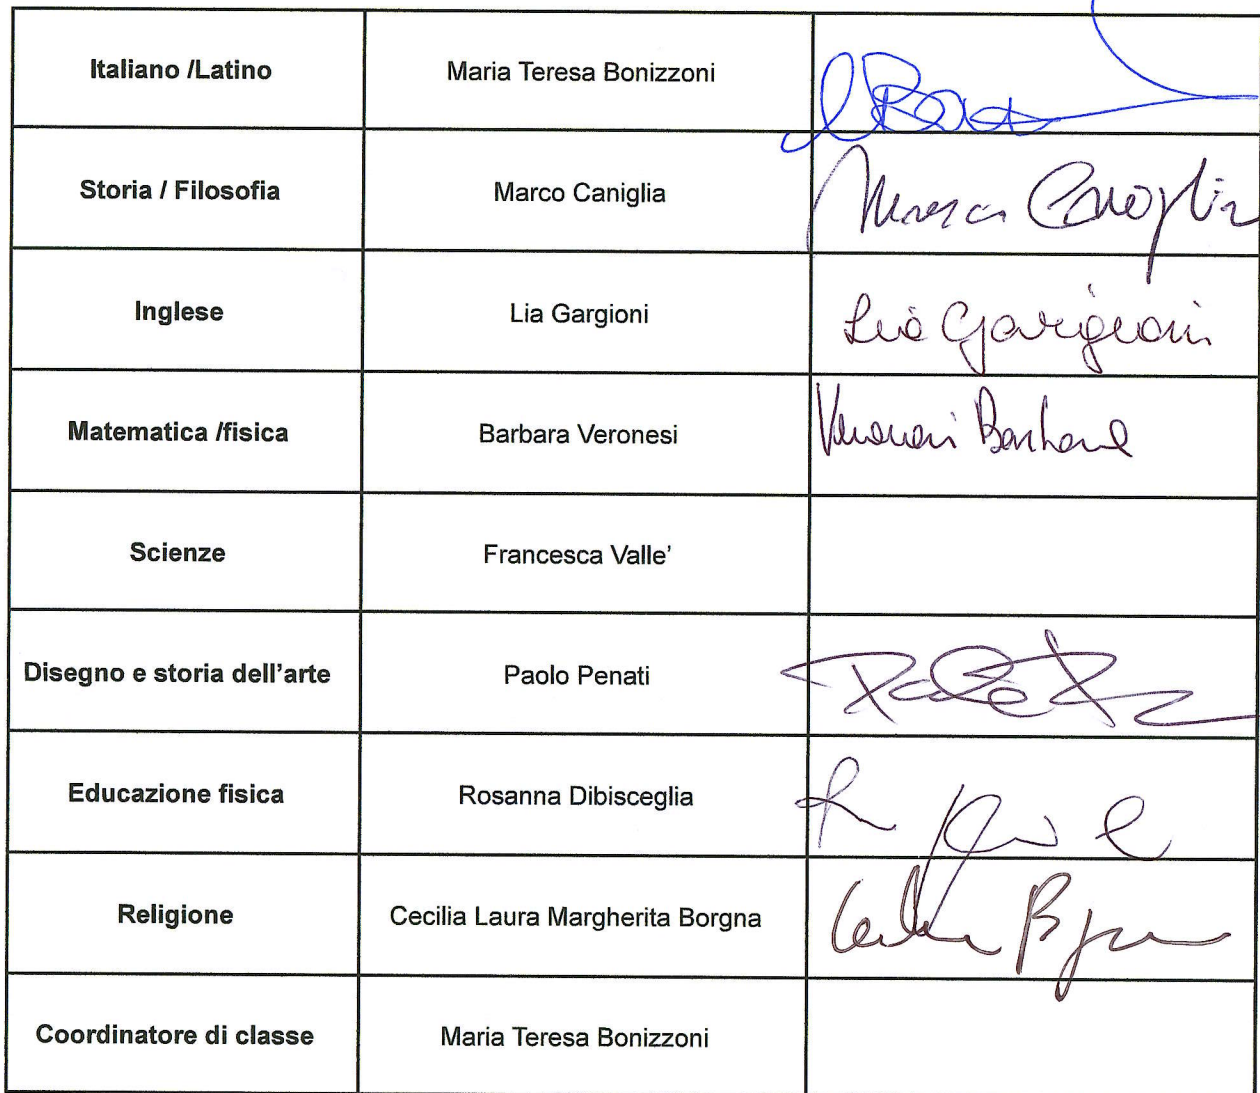 Italiano /Latino Maria Teresa Bonizzoni
Storia / Filosofia Marco Caniglia Marco Caniglia
Inglese Lia Gargioni Lia Gargioni
Matematica /fisica Barbara Veronesi Veronesi Barbara
Scienze Francesca Valle'
Disegno e storia dell'arte Paolo Penati
Educazione fisica Rosanna Dibisceglia
Religione Cecilia Laura Margherita Borgna
Coordinatore di classe Maria Teresa Bonizzoni